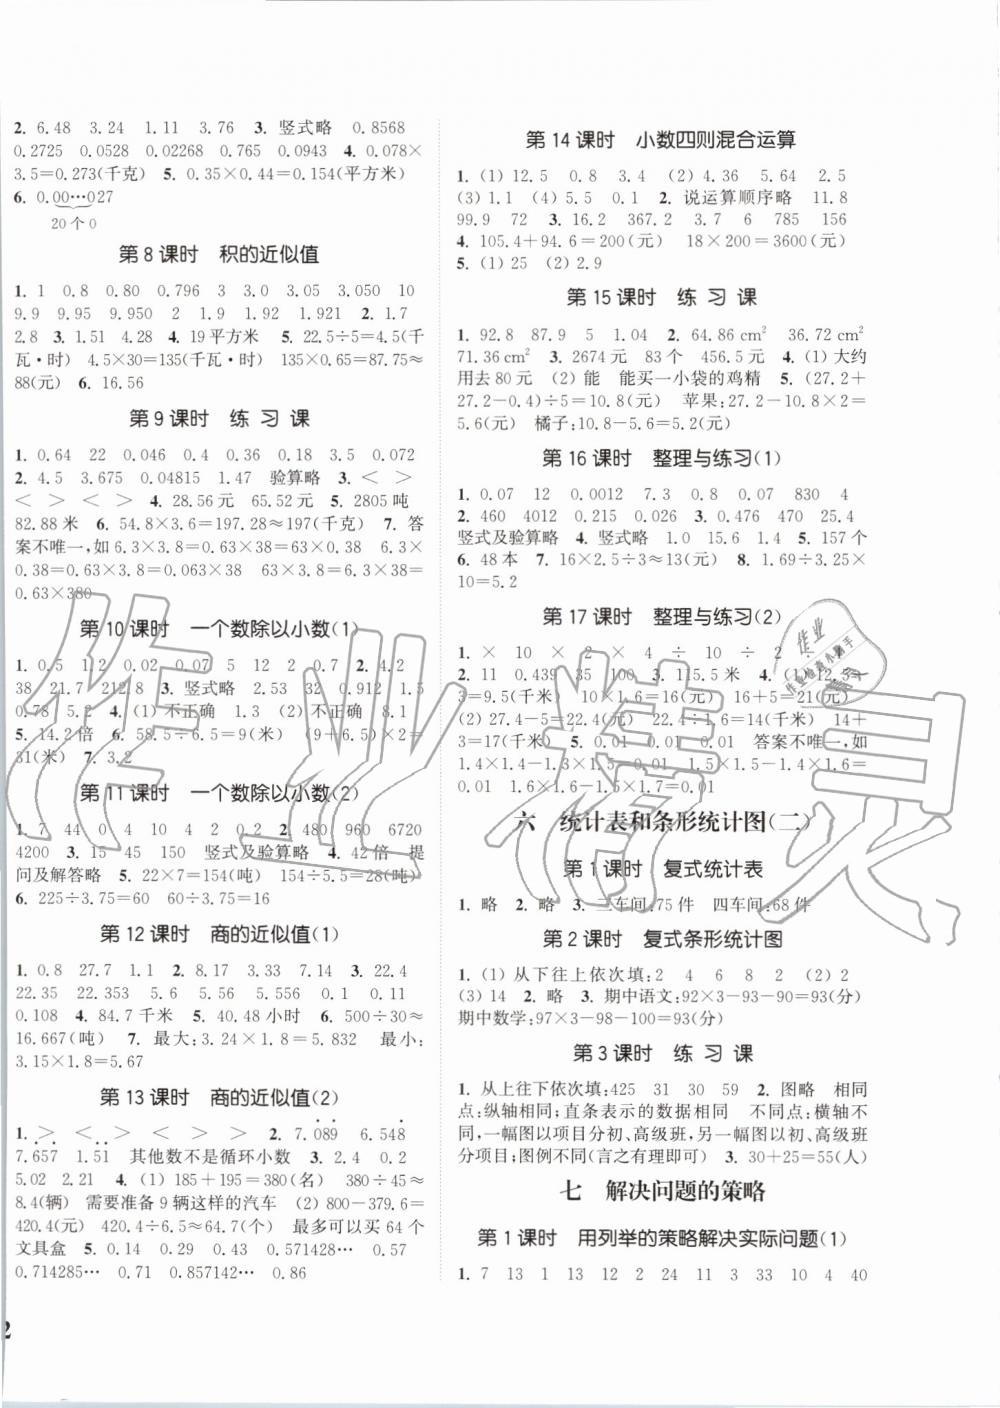 2. 6.48 3.24 1.11 3.76 3. 竖式略 0.8568
0.2725 0.0528 0.02268 0.765 0.0943 4. 0.078×
3.5=0.273(千克) 5. 0.35×0.44=0.154(平方米)
6. 0.00…027
20个0
第8课时 积的近似值
1. 1 0.8 0.80 0.796 3 3.0 3.05 3.050 10
9.9 9.95 9.950 2 1.9 1.92 1.921 2. 1.7
2.8 3. 1.51 4.28 4. 19平方米 5. 22.5÷5=4.5(千
瓦·时) 4.5×30=135(千瓦·时) 135×0.65=87.75≈
88(元) 6. 16.56
第9课时 练习课
1. 0.64 22 0.046 0.4 0.36 0.18 3.5 0.072
2. 4.5 3.675 0.04815 1.47 验算略 3. < >
< > < > 4. 28.56元 65.52元 5. 2805吨
82.88米 6. 54.8×3.6=197.28≈197(千克) 7. 答
案不唯一,如6.3×3.8=0.63×38=63×0.38 6.3×
0.38=0.63×3.8=0.063×38 63×3.8=6.3×38=
0.63×380
第10课时 一个数除以小数(1)
1. 0.5 1.2 0.02 0.07 5 12 2 0.7 2. 4.2
38 21.7 212.8 3. 竖式略 2.53 32 0.912 1.5
0.78 5.2 4. (1) 不正确 1.3 (2) 不正确 8.1
5. 14.2倍 6. 58.5÷6.5=9(米) (9+6.5)×2=
31(米) 7. 3.2
第11课时 一个数除以小数(2)
1. 7 44 0 4 10 4 2 0.2 2. 480 960 6720
4200 3. 15 45 150 竖式及验算略 4. 42倍 提
问及解答略 5. 22×7=154(吨) 154÷5.5=28(吨)
6. 225÷3.75=60 60÷3.75=16
第12课时 商的近似值(1)
1. 0.8 27.7 1.1 2. 8.17 3.33 7.14 3. 22.4
22.35 22.353 5.6 5.55 5.556 0.1 0.11
0.108 4. 84.7千米 5. 40.48小时 6. 500÷30≈
16.667(吨) 7. 最大:3.24×1.8=5.832 最小:
3.15×1.8=5.67
第13课时 商的近似值(2)
1. > < > < > > 2. 7.0̇89̇ 6.5̇48̇
7.6̇57̇ 1.5̇1̇ 其他数不是循环小数 3. 2.4 0.42
5.02 0.21 4. (1) 185+195=380(名) 380÷45≈
8.4(辆) 需要准备9辆这样的汽车 (2) 800-379.6=
420.4(元) 420.4÷6.5≈64(个) 最多可以买64个
文具盒 5. 0.14 0.29 0.43 0.571428… 0.57
0.714285… 0.71 0.857142… 0.86
第14课时 小数四则混合运算
1. (1) 12.5 0.8 3.4 (2) 4.36 5.64 2.5
(3) 1.1 (4) 5.5 0.1 2. 说运算顺序略 11.8
99.9 72 3. 16.2 367.2 3.7 6 785 156
4. 105.4+94.6=200(元) 18×200=3600(元)
5. (1) 25 (2) 2.9
第15课时 练习课
1. 92.8 87.9 5 1.04 2. 64.86 cm² 36.72 cm²
71.36 cm² 3. 2674元 83个 456.5元 4. (1) 大约
用去80元 (2) 能 能买一小袋的鸡精 5. (27.2+
27.2-0.4)÷5=10.8(元) 苹果:27.2-10.8×2=
5.6(元) 橘子:10.8-5.6=5.2(元)
第16课时 整理与练习(1)
1. 0.07 12 0.0012 7.3 0.8 0.07 830 4
2. 460 4012 0.215 0.026 3. 0.476 470 25.4
竖式及验算略 4. 竖式略 1.0 15.6 1.4 5. 157个
6. 48本 7. 16×2.5÷3≈13(元) 8. 1.69÷1.3×
10=5.2
第17课时 整理与练习(2)
1. × 10 × 2 × 4 ÷ 10 ÷ 2
2. 11 0.439 35 100 3. 115.5米 4. (1) 12.5-
3=9.5(千米) 10×1.6=16(元) 16+5=21(元)
(2) 27.4-5=22.4(元) 22.4÷1.6=14(千米) 14+
3=17(千米) 5. 0.01 0.01 0.01 答案不唯一,如
1.4×1.4-1.3×1.5=0.01 1.5×1.5-1.4×1.6=
0.01 1.6×1.6-1.5×1.7=0.01
六 统计表和条形统计图(二)
第1课时 复式统计表
1. 略 2. 略 3. 二车间:75件 四车间:68件
第2课时 复式条形统计图
1. (1) 从下往上依次填:2 4 6 8 2 (2) 2
(3) 14 2. 略 3. 期中语文:92×3-93-90=93(分)
期中数学:97×3-98-100=93(分)
第3课时 练习课
1. 从上往下依次填:425 31 30 59 2. 图略 相同
点:纵轴相同;直条表示的数据相同 不同点:横轴不
同,一幅图以项目分初、高级班,另一幅图以初、高级班
分项目;图例不同(言之有理即可) 3. 30+25=55(人)
七 解决问题的策略
第1课时 用列举的策略解决实际问题(1)
1. 7 13 1 13 12 24 2 11 3 33 10 4 40
2
作业精灵
作业
作业检查小助手
精灵